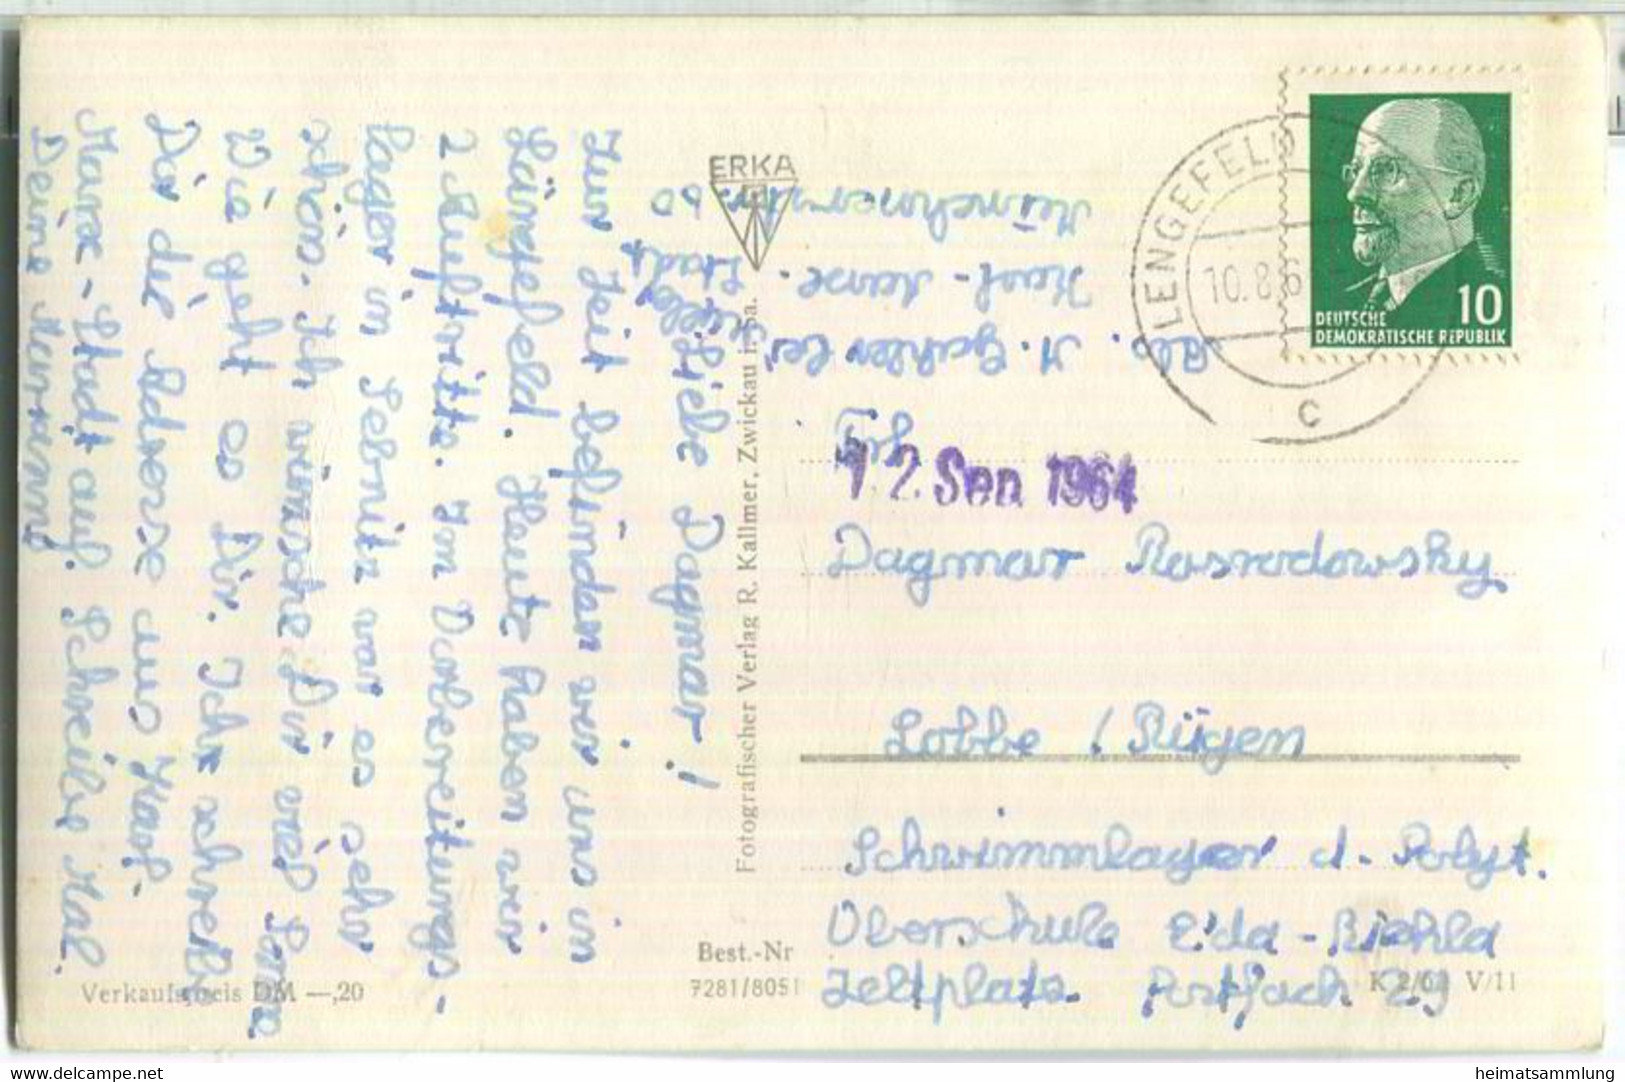 Liebe Dagmar!
Zur Zeit befinden wir uns in
Lengefeld. Heute haben wir
2 Auftritte. Im Vorbereitungs-
lager in Sebnitz war es sehr
schön. Ich wünsche Dir viel Sonne
Wie geht es Dir. Ich schreibe
Dir die Adresse aus Karl-
Marx-Stadt auf. Schreibe Mal.
Deine
Viele
Abs. A. Gahler bei
Karl-Marx-Stadt
60
ERKA
Fotografischer Verlag R. Kallmer, Zwickau i. Sa.
LENGEFELD
10.8.6
c
DEUTSCHE
DEMOKRATISCHE REPUBLIK
10
Frl.
12. Sep. 1964
Dagmar
Lobbe / Rügen
Schwimmlager d. Polyt.
Oberschule
Zeltplatz Postfach 29
Verkaufspreis DM —,20
Best.-Nr
7281/8051
K 2/61 V/11
www.delcampe.net
heimatsammlung